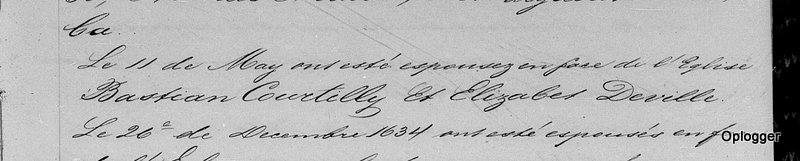 Ca.
Le 11 de May ont esté espousez en face de l'Eglise
Bastian Courtilly et Elizabet Deville.
Le 26e de Decembre 1634 ont esté espousés en f
Oplogger